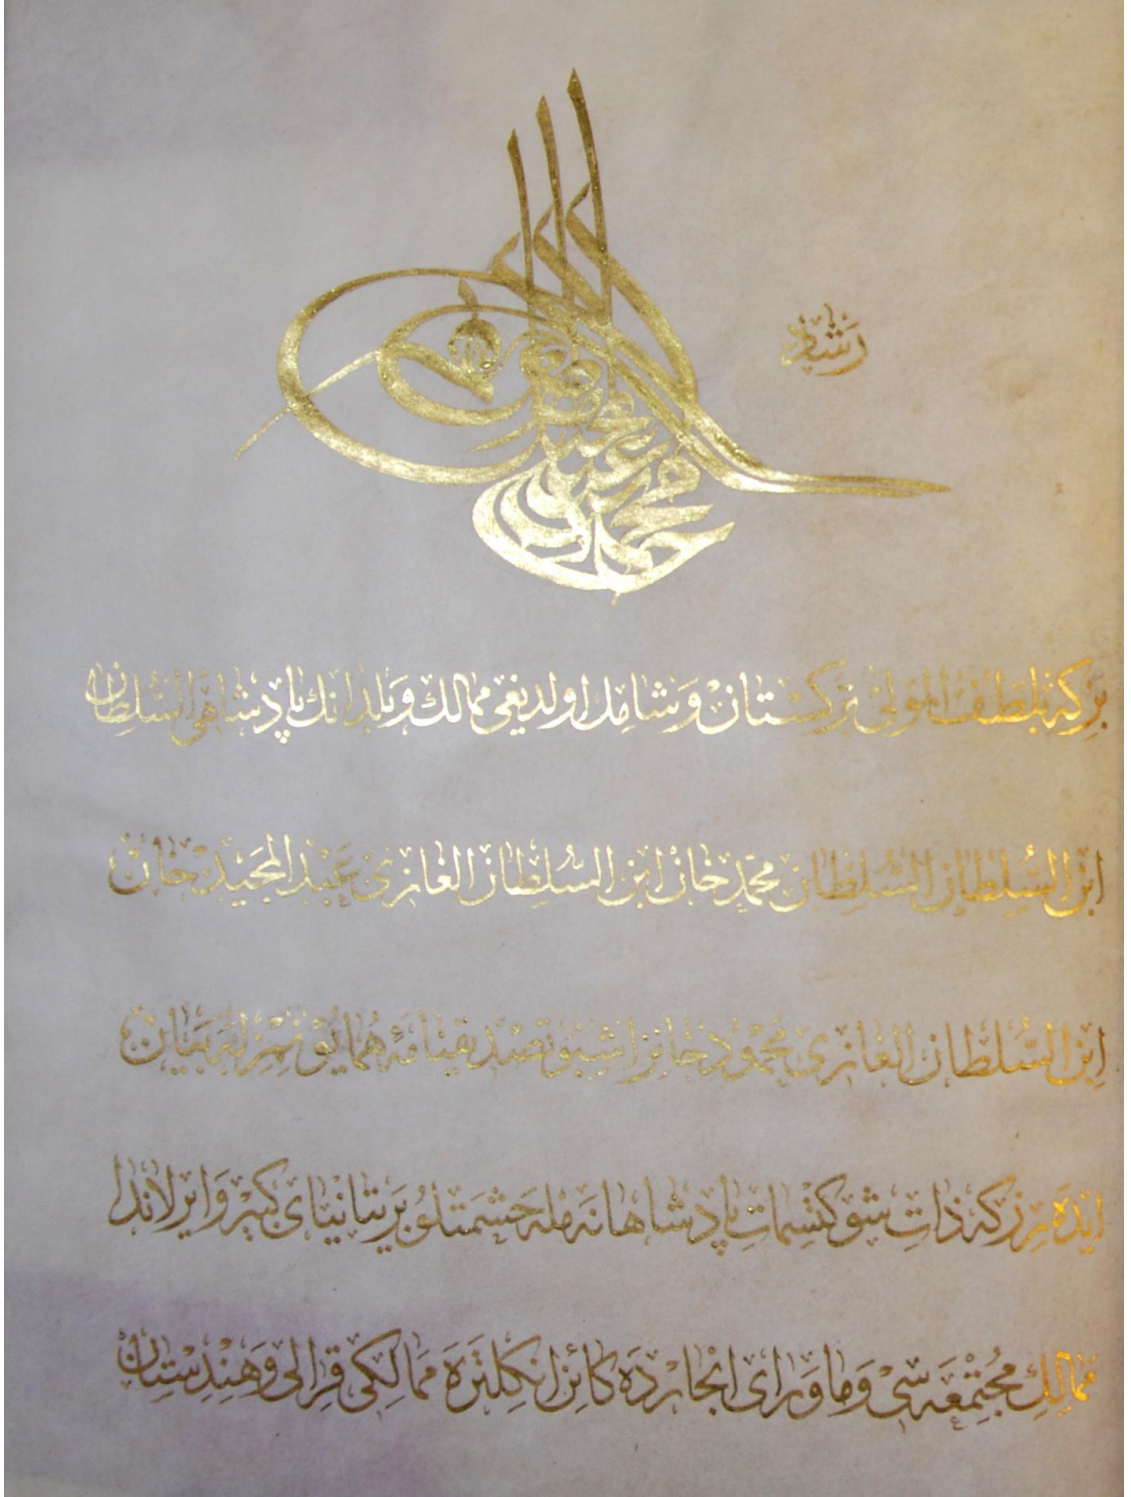 رشاد
بزكه بلطف المولى تركستان وشامل اولديغى ممالك وبلدانك پادشاهى السلطان
ابن السلطان السلطان محمد خان ابن السلطان الغازى عبد المجيد خان
ابن السلطان الغازى محمود خانز اشبو تصديقنامهٔ همايونمزله بيان
ايده رز كه ذات شوكتسمات پادشاهانه مله حشمتلو بريتانياى كبير وايرلاندا
ممالك مجتمعه سى وماوراى ابحارده كائن انكلتره ممالكى قرالى وهندستان